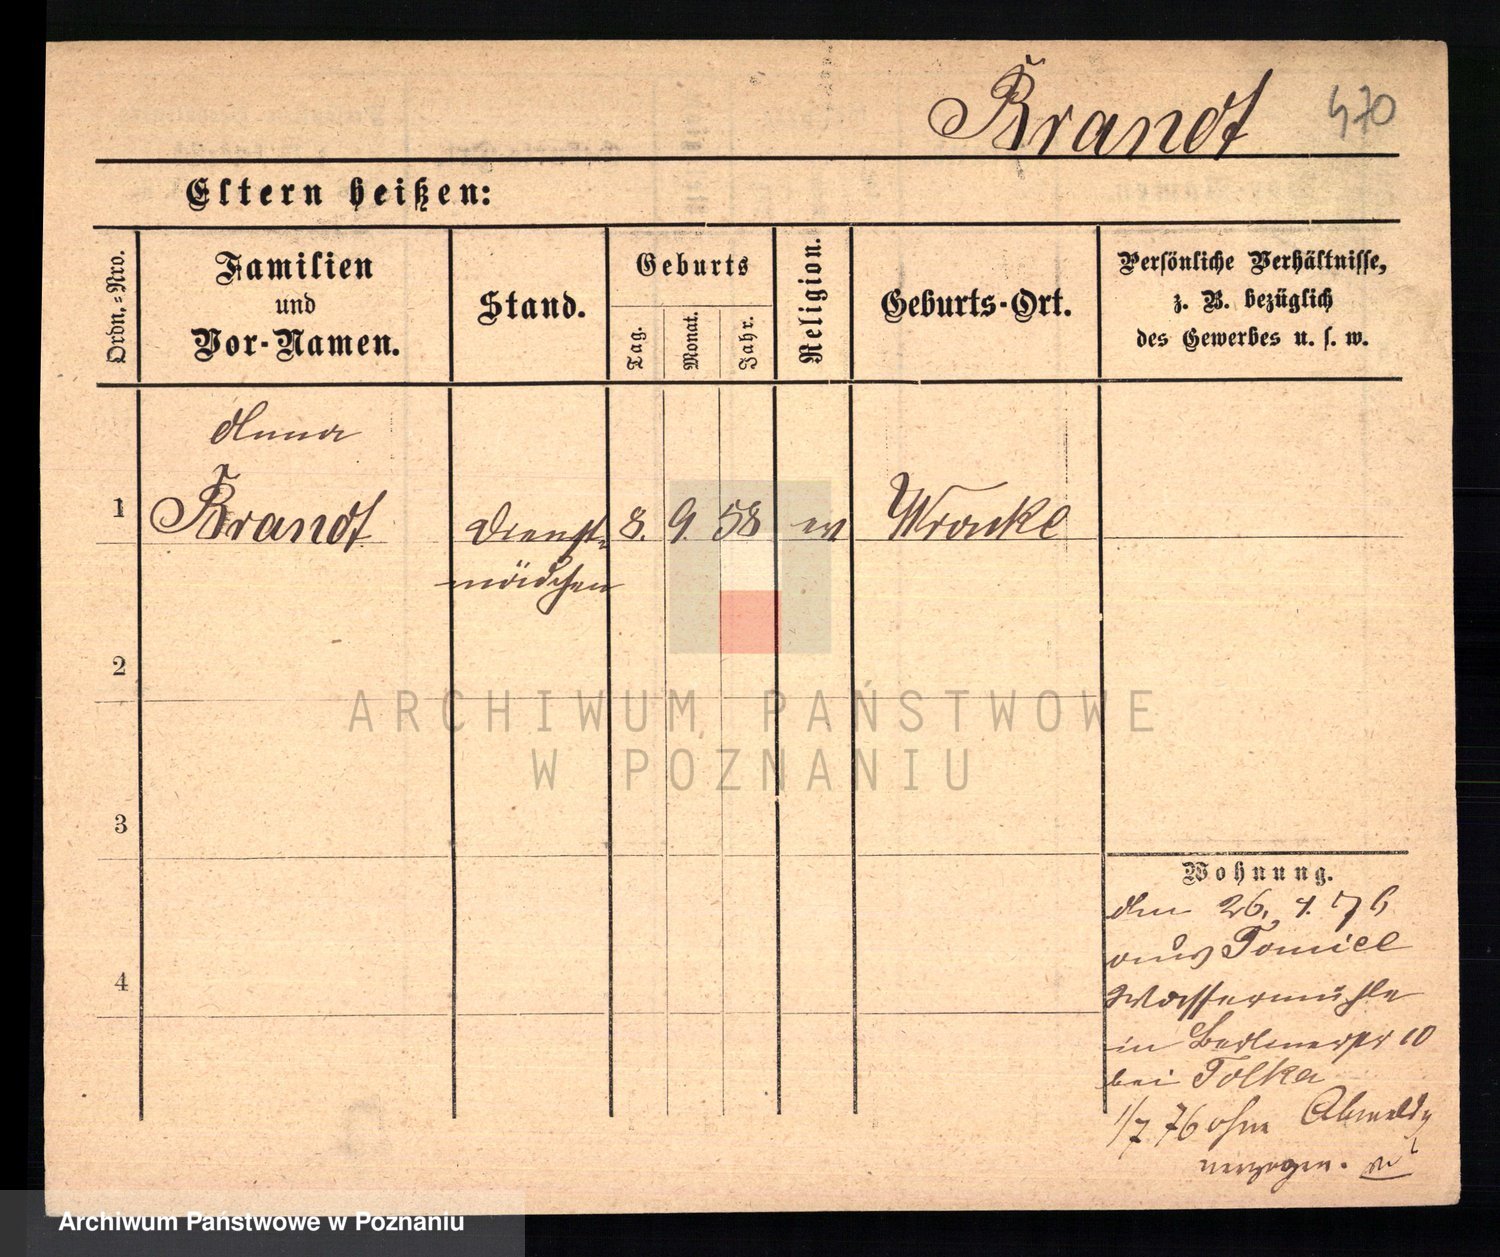 Brandt 470
Eltern heißen:
Ordn.=Nro.
Familien
und
Vor-Namen.
Stand.
Geburts
Tag.
Monat.
Jahr.
Religion.
Geburts-Ort.
Persönliche Verhältnisse,
z. B. bezüglich
des Gewerbes u. s. w.
Anna
1 Brandt Dienst- 8. 9. 58 ev Wronke
mädchen
2
3
4
Wohnung.
den 26. 4. 76
aus
Wassermühle
in Berlinerstr 10
bei Tolka
1/7 76 ohne Abmeldg
verzogen.
ARCHIWUM PAŃSTWOWE
W POZNANIU
Archiwum Państwowe w Poznaniu